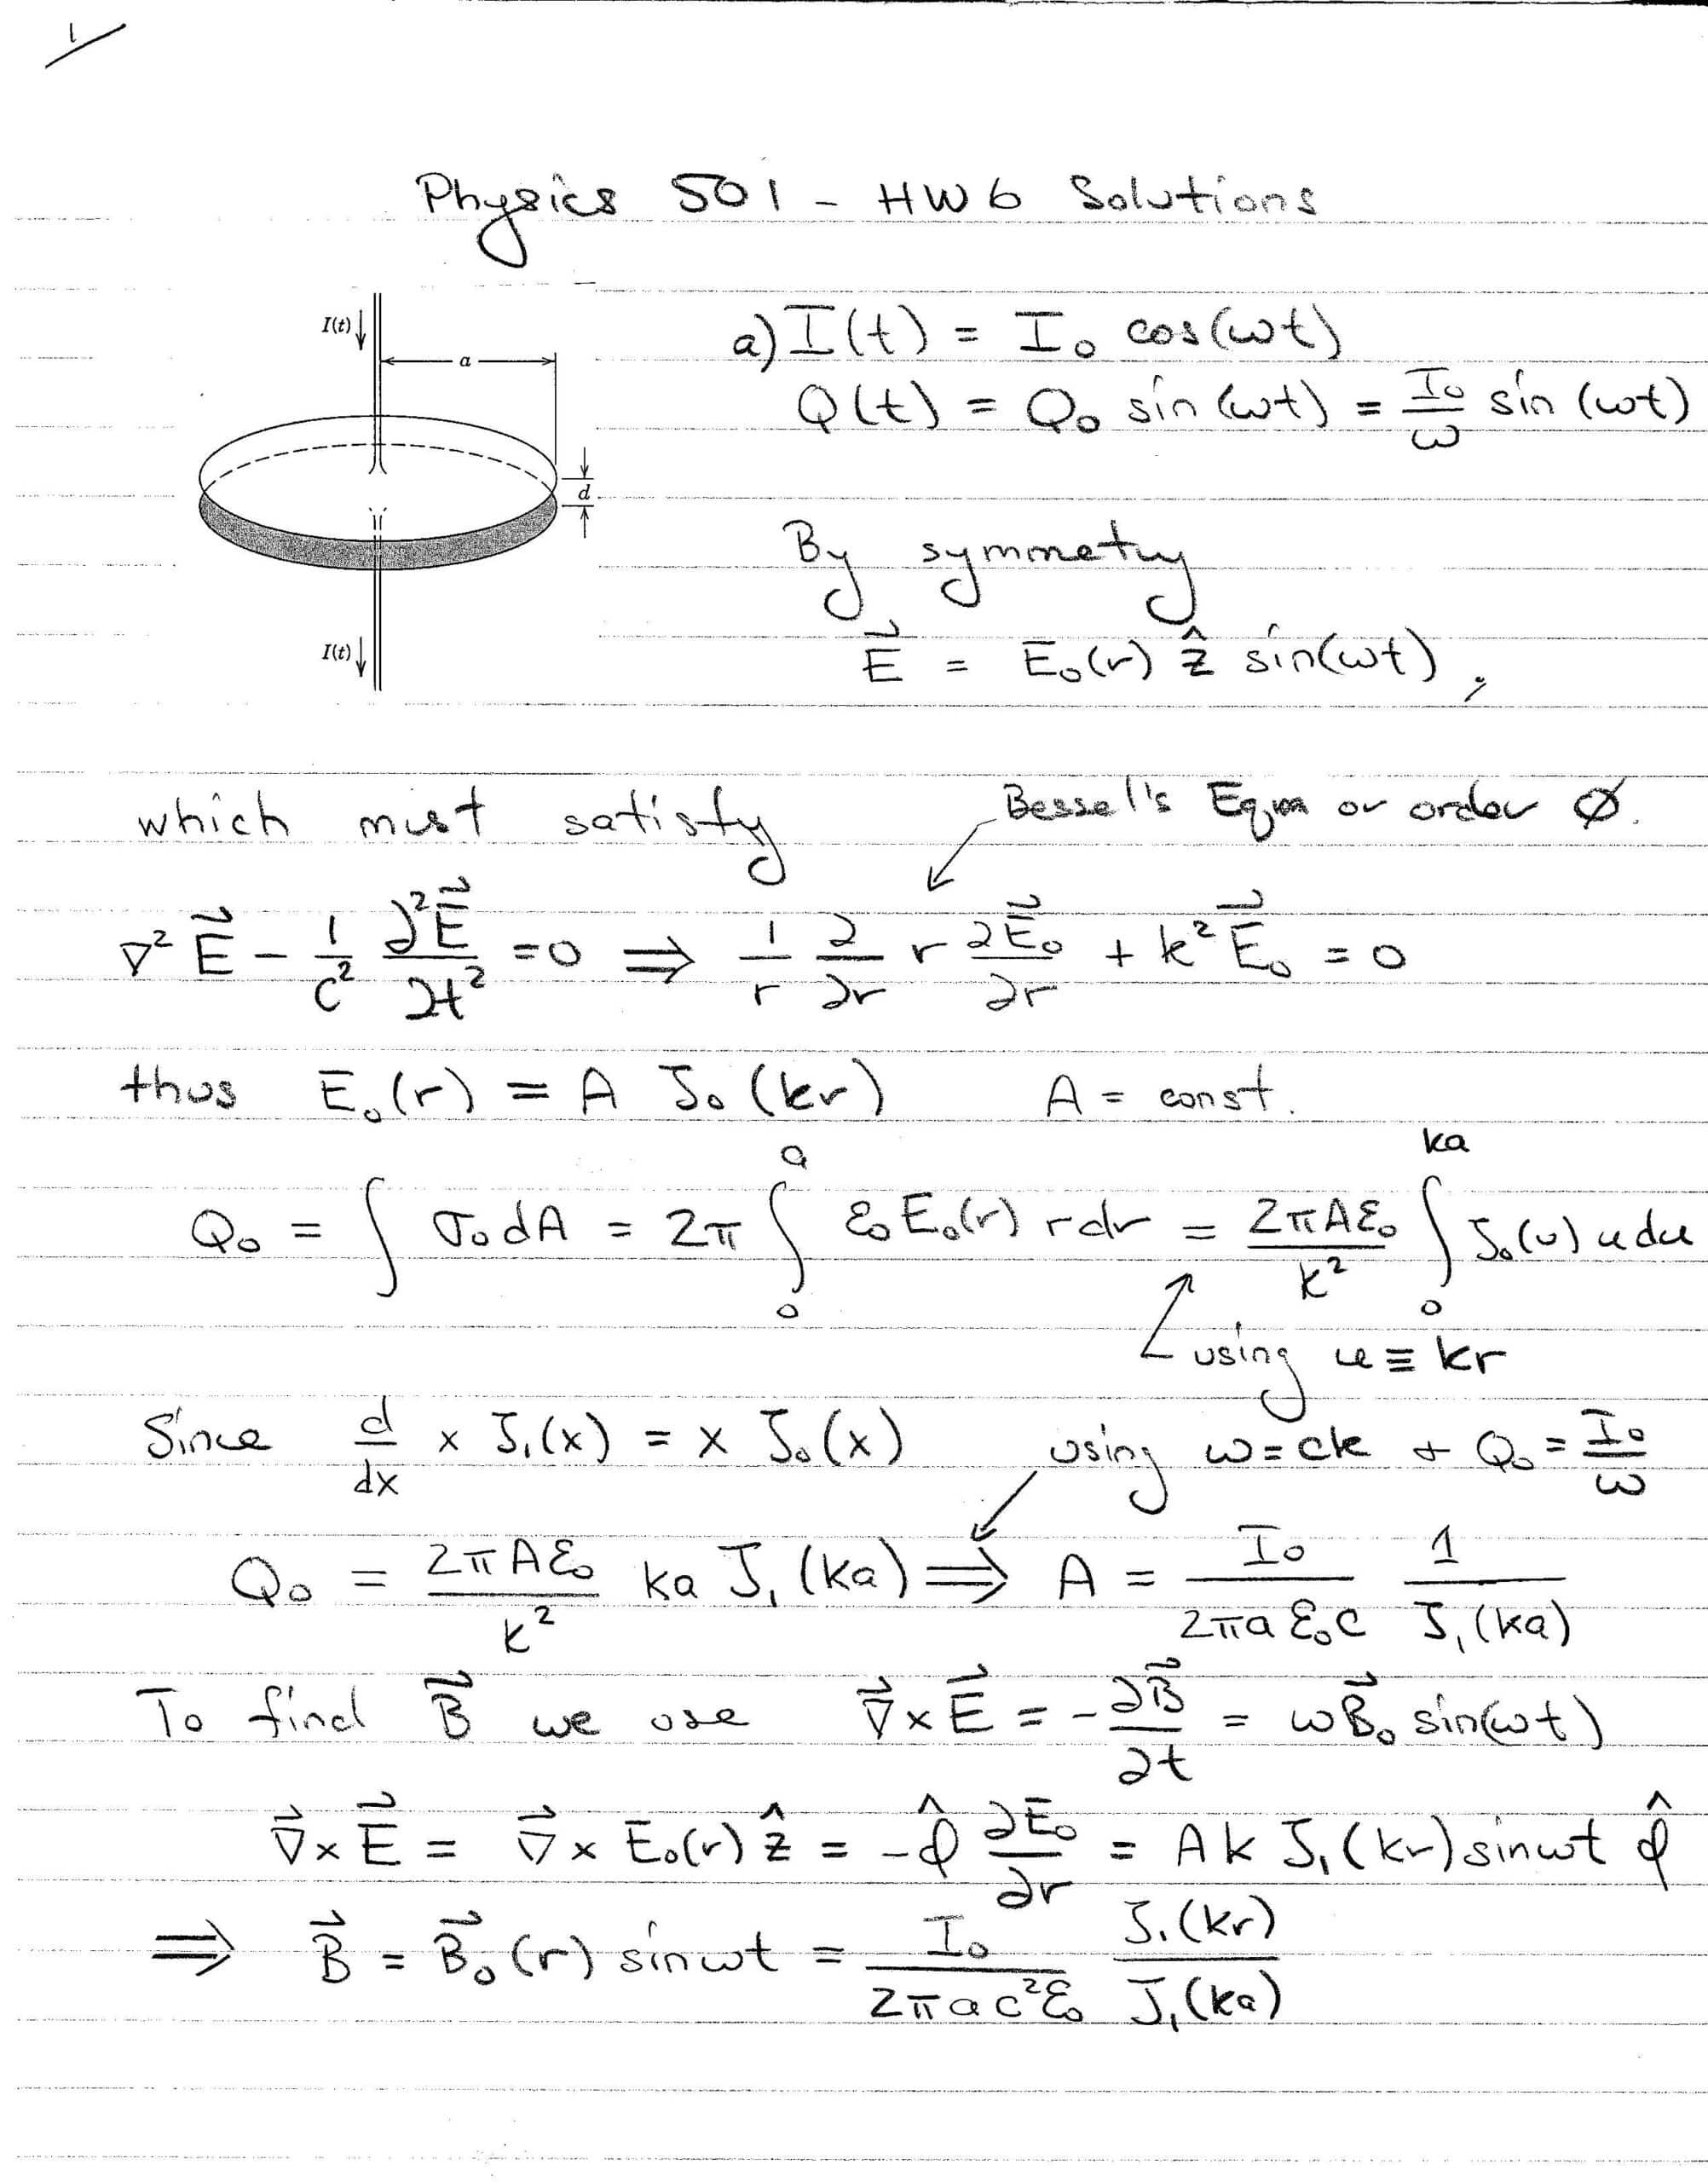 1
Physics 501 - HW 6 Solutions
I(t)
a
d
I(t)
a) I(t) = I₀ cos(ωt)
Q(t) = Q₀ sin(ωt) = I₀/ω sin(ωt)
By symmetry
E⃗ = E₀(r) ẑ sin(ωt),
which must satisfy
Bessel's Eqn or order Ø.
∇² E⃗ - 1/c² ∂²E⃗/∂t² = 0 ⇒ 1/r ∂/∂r r ∂E⃗₀/∂r + k² E⃗₀ = 0
thus E₀(r) = A J₀(kr) A = const.
Q₀ = ∫ σ₀ dA = 2π ∫₀ᵃ ε₀ E₀(r) r dr = 2πAε₀/k² ∫₀ᵏᵃ J₀(u) u du
using u ≡ kr
Since d/dx x J₁(x) = x J₀(x) using ω = ck + Q₀ = I₀/ω
Q₀ = 2πAε₀/k² ka J₁(ka) ⇒ A = I₀/2πaε₀c 1/J₁(ka)
To find B⃗ we use ∇⃗×E⃗ = -∂B⃗/∂t = ωB⃗₀ sin(ωt)
∇⃗×E⃗ = ∇⃗×E₀(r) ẑ = -φ̂ ∂E₀/∂r = A k J₁(kr) sinωt φ̂
⇒ B⃗ = B⃗₀(r) sinωt = I₀/2πac²ε₀ J₁(kr)/J₁(ka)